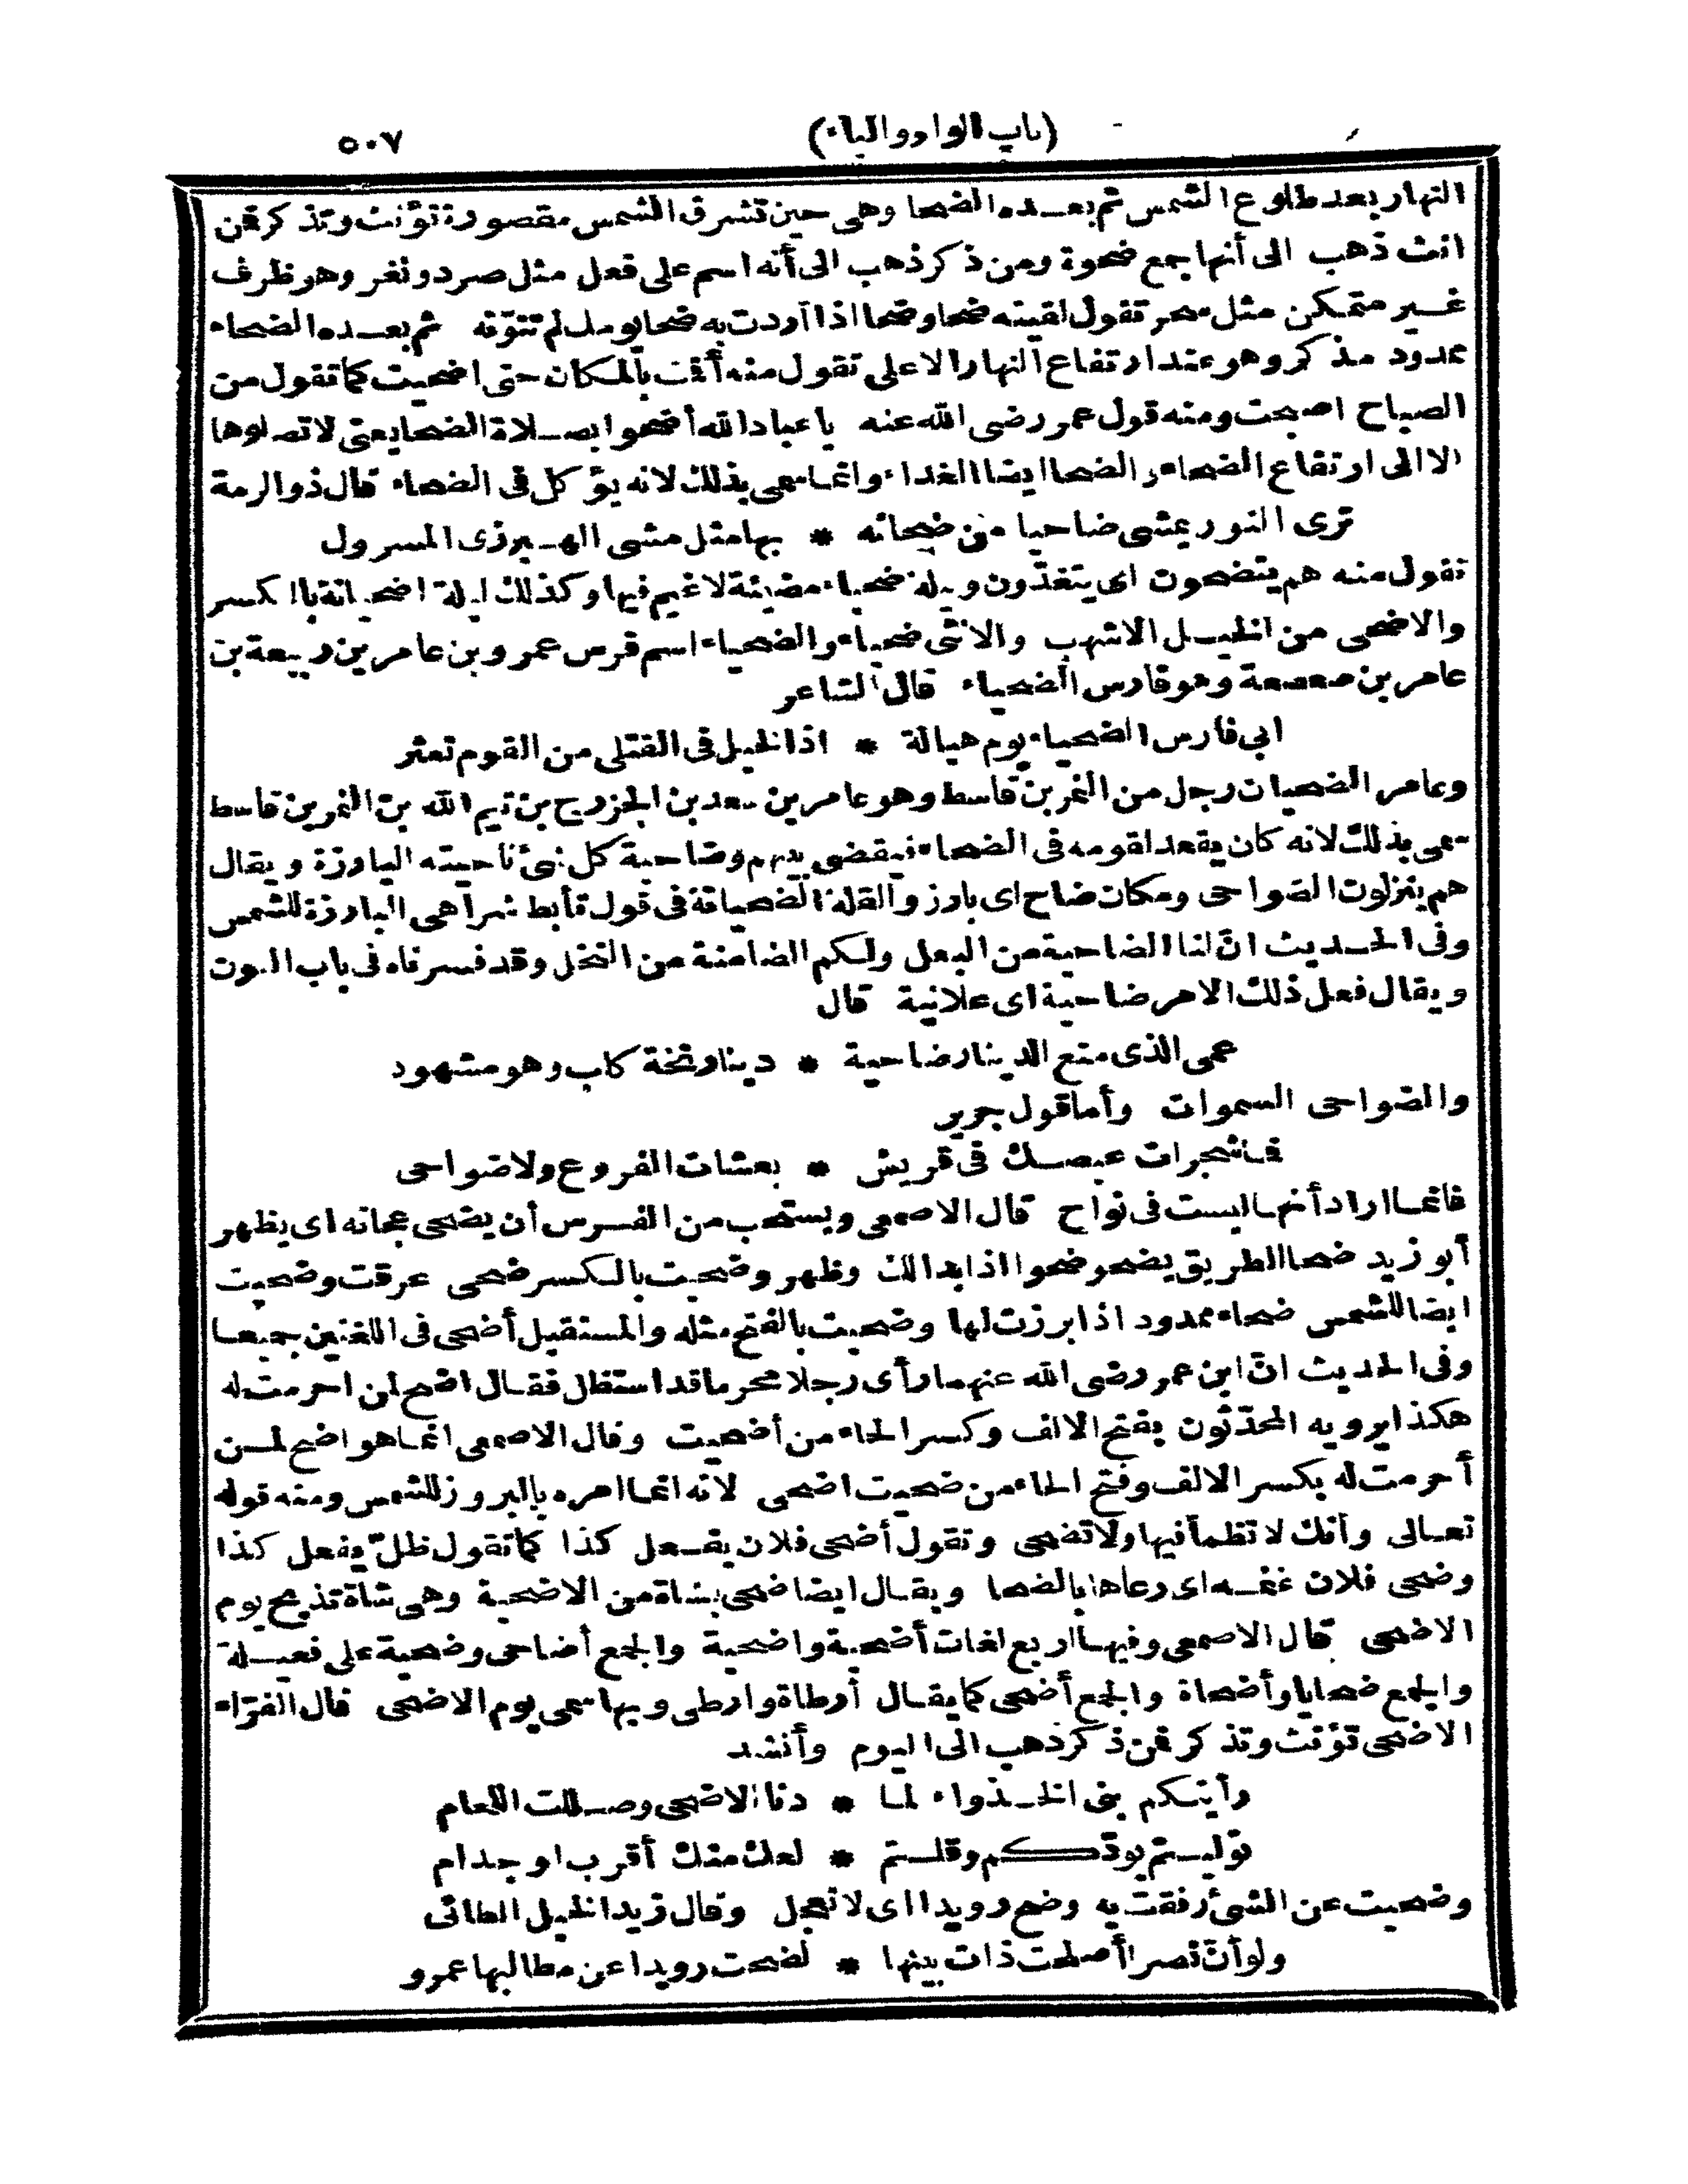 (باب الواو والياء) ٥٠٧
النهار بعد طلوع الشمس ثم بعده الضحا وهى حين تشرق الشمس مقصورة تؤنث وتذكر فمن
انث ذهب الى أنها جمع ضحوة ومن ذكر ذهب الى أنه اسم على فعل مثل صرد ونغر وهو ظرف
غير متمكن مثل سحر تقول لقيته ضحا وضحا اذا أردت به ضحا يومك لم تنوّنه ثم بعده الضحاء
ممدود مذكر وهو عند ارتفاع النهار الاعلى تقول منه أقمت بالمكان حتى اضحيت كما تقول من
الصباح اصبحت ومنه قول عمر رضى الله عنه يا عباد الله أضحوا بصلاة الضحا يعنى لا تصلوها
الا الى ارتفاع الضحاء والضحا ايضا الغداء وانما سمى بذلك لانه يؤكل فى الضحاء قال ذو الرمة
ترى الثور يمشى ضاحيا من ضحائه * بها مثل مشى الهبرزى المسرول
تقول منه هم يتضحون اى يتغذّون وليلة ضحياء مضيئة لا غيم فيها وكذلك ليلة اضحيانة بالكسر
والاضحى من الخيل الاشهب والانثى ضحياء والضحياء اسم فرس عمرو بن عامر بن ربيعة بن
عامر بن صعصعة وهو فارس الضحياء قال الشاعر
ابى فارس الضحياء يوم هبالة * اذ الخيل فى القتلى من القوم تعثر
وعامر الضحيان رجل من النمر بن قاسط وهو عامر بن سعد بن الخزرج بن تيم الله بن النمر بن قاسط
سمى بذلك لانه كان يقعد لقومه فى الضحاء فيقضى بينهم وضاحية كل شئ ناحيته البارزة ويقال
هم ينزلون الضواحى ومكان ضاح اى بارز والقلة الضحيانة فى قول تأبط شرا هى البارزة للشمس
وفى الحديث انّ لنا الضاحية من البعل ولكم الضامنة من النخل وقد فسرناه فى باب النون
ويقال فعل ذلك الامر ضاحية اى علانية قال
عمى الذى منع الدينار ضاحية * دينار نخة كلب وهو مشهود
والضواحى السموات وأما قول جرير
فما شجرات عيصك فى قريش * بعشات الفروع ولا ضواحى
فانما اراد أنها ليست فى نواح قال الاصمعى ويستحب من الفرس أن يضحى عجانه اى يظهر
أبو زيد ضحا الطريق يضحو ضحوا اذا بدا لك وظهر وضحيت بالكسر ضحى عرقت وضحيت
ايضا للشمس ضحاء ممدود اذا برزت لها وضحيت بالفتح مثله والمستقبل أضحى فى اللغتين جميعا
وفى الحديث انّ ابن عمر رضى الله عنهما رأى رجلا محرما قد استظل فقال اضح لمن احرمت له
هكذا يرويه المحدّثون بفتح الالف وكسر الحاء من أضحيت وقال الاصمعى انما هو اضح لمن
أحرمت له بكسر الالف وفتح الحاء من ضحيت اضحى لانه انما امره بالبروز للشمس ومنه قوله
تعالى وأنك لا تظمأ فيها ولا تضحى وتقول أضحى فلان يفعل كذا كما تقول ظلّ يفعل كذا
وضحى فلان غنمه اى رعاها بالضحا ويقال ايضا ضحى بشاة من الاضحية وهى شاة تذبح يوم
الاضحى قال الاصمعى وفيها اربع لغات أضحية واضحية والجمع أضاحى وضحية على فعيلة
والجمع ضحايا وأضحاة والجمع أضحى كما يقال أرطاة وارطى وبها سمى يوم الاضحى قال الفرّاء
الاضحى تؤنث وتذكر فمن ذكر ذهب الى اليوم وأنشد
رأيتكم بنى الخذواء لما * دنا الاضحى وصللت اللحام
توليتم بودّكم وقلتم * لعك منك أقرب او جذام
وضحيت عن الشئ رفقت به وضح رويدا اى لا تعجل وقال زيد الخيل الطائى
ولو أنّ نصرا أصلحت ذات بينها * لضحت رويدا عن مطالبها عمرو